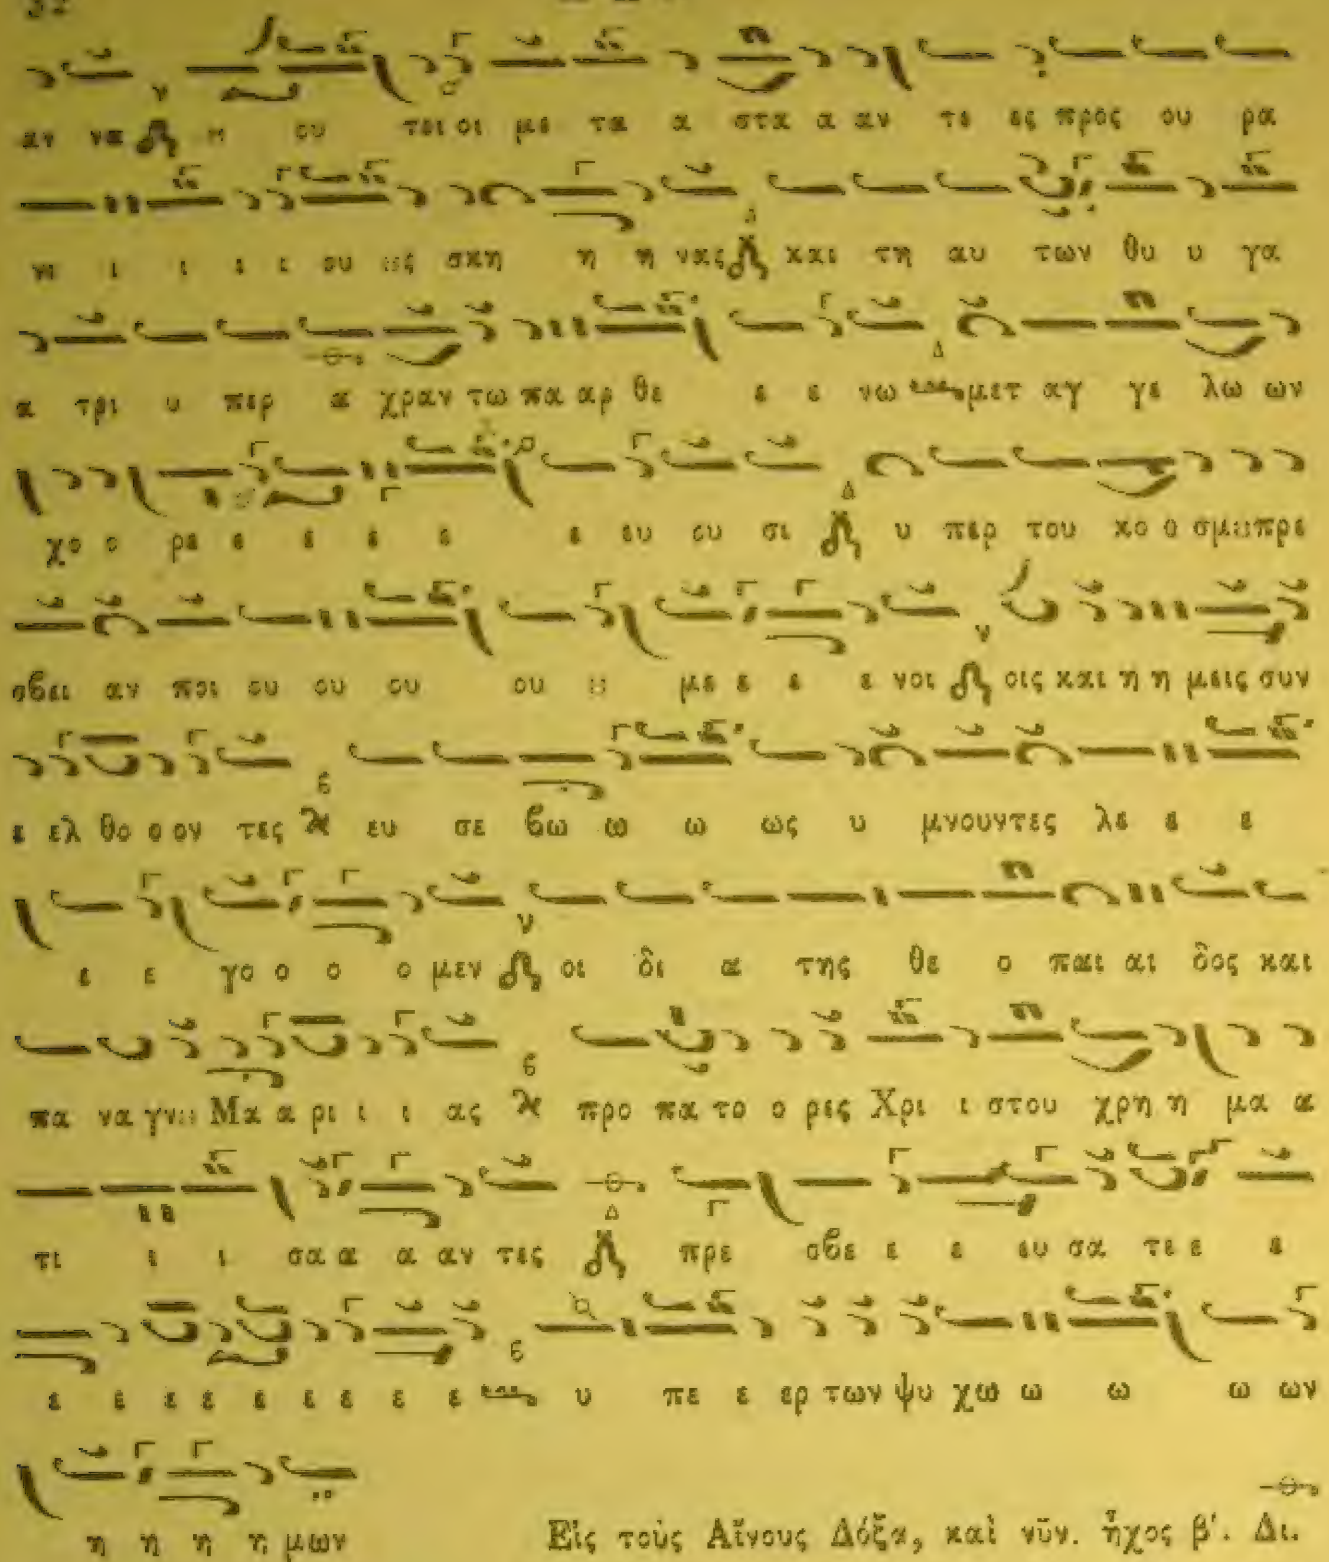 32
αν να η ου τοι οι με τα α στα α αν τε ες προς ου ρα
νι ι ι ι ι ου ους σκη η η νας και τη αυ των θυ υ γα
α τρι υ περ α χραν τω πα αρ θε ε ε νω μετ αγ γε λω ων
χο ο ρε ε ε ε ε ε ευ ου σι υ περ του κο ο σμου πρε
σβει αν ποι ου ου ου ου ου με ε ε ε νοι οις και η η μεις συν
ε ελ θο ο ον τες ευ σε βω ω ω ως υ μνουντες λε ε ε
ε ε γο ο ο ο μεν οι δι α της θε ο παι αι δος και
πα να γνου Μα α ρι ι ι ας προ πα το ο ρες Χρι ι στου χρη η μα α
τι ι ι σα α α αν τες πρε σβε ε ε ευ σα τε ε ε
ε ε ε ε ε ε ε ε ε υ πε ε ερ των ψυ χω ω ω ω ων
η η η η μων Εἰς τοὺς Αἴνους Δόξα, καὶ νῦν. ἦχος β'. Δι.